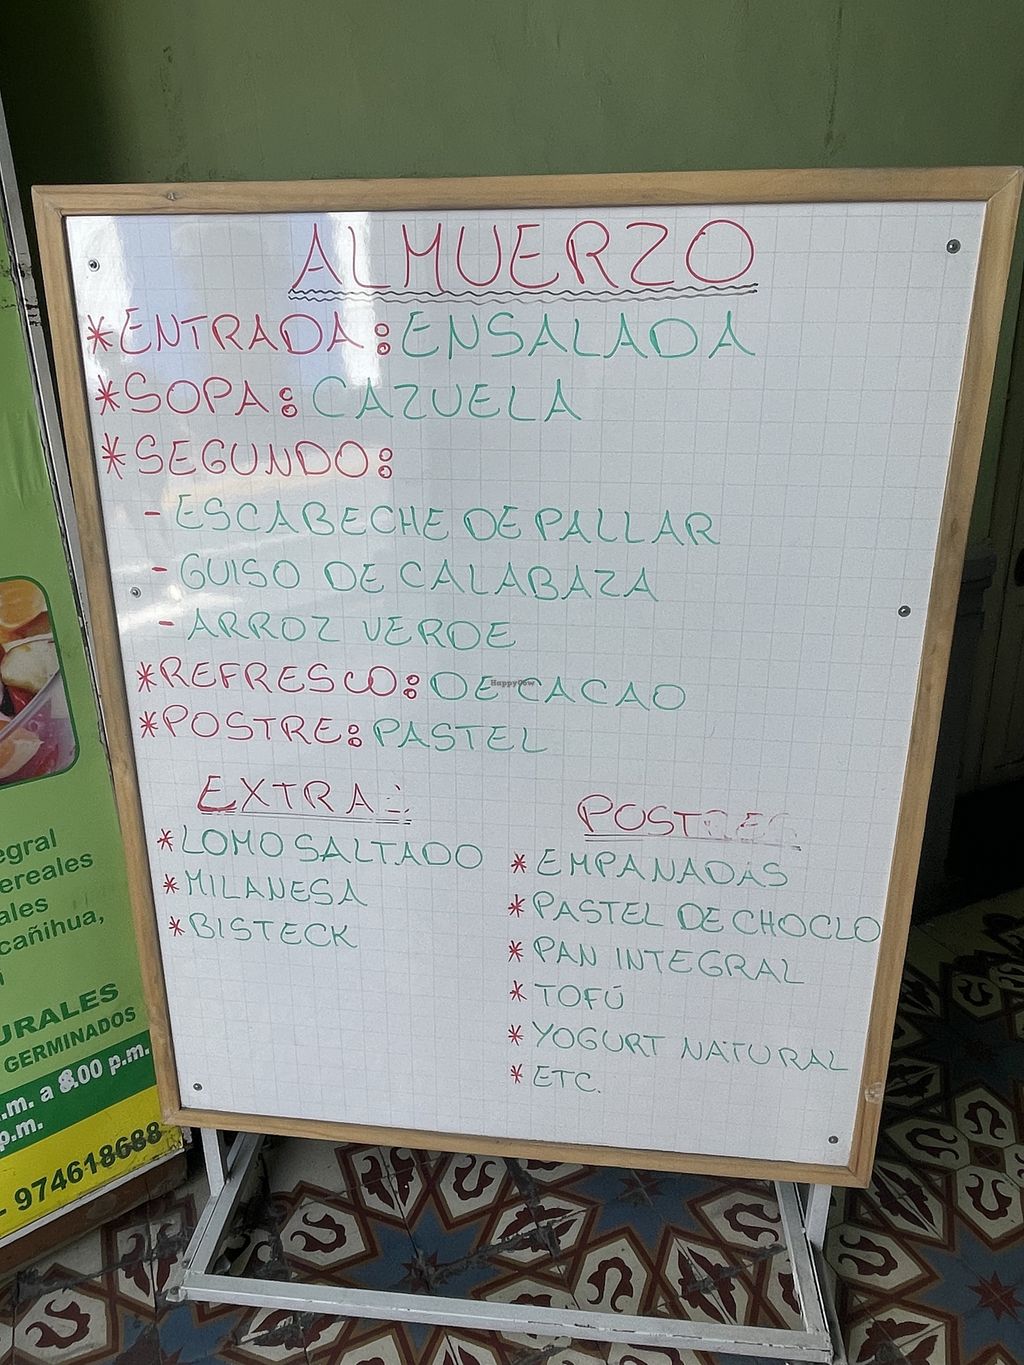 ALMUERZO
*ENTRADA: ENSALADA
*SOPA: CAZUELA
*SEGUNDO:
- ESCABECHE DE PALLAR
- GUISO DE CALABAZA
- ARROZ VERDE
*REFRESCO: DE CACAO
*POSTRE: PASTEL
EXTRA:
*LOMO SALTADO
*MILANESA
*BISTECK
POSTRES
*EMPANADAS
*PASTEL DE CHOCLO
*PAN INTEGRAL
*TOFÚ
*YOGURT NATURAL
*ETC.
HappyCow
egral
ereales
ales
cañihua,
URALES
GERMINADOS
.m. a 8.00 p.m.
p.m.
974618688